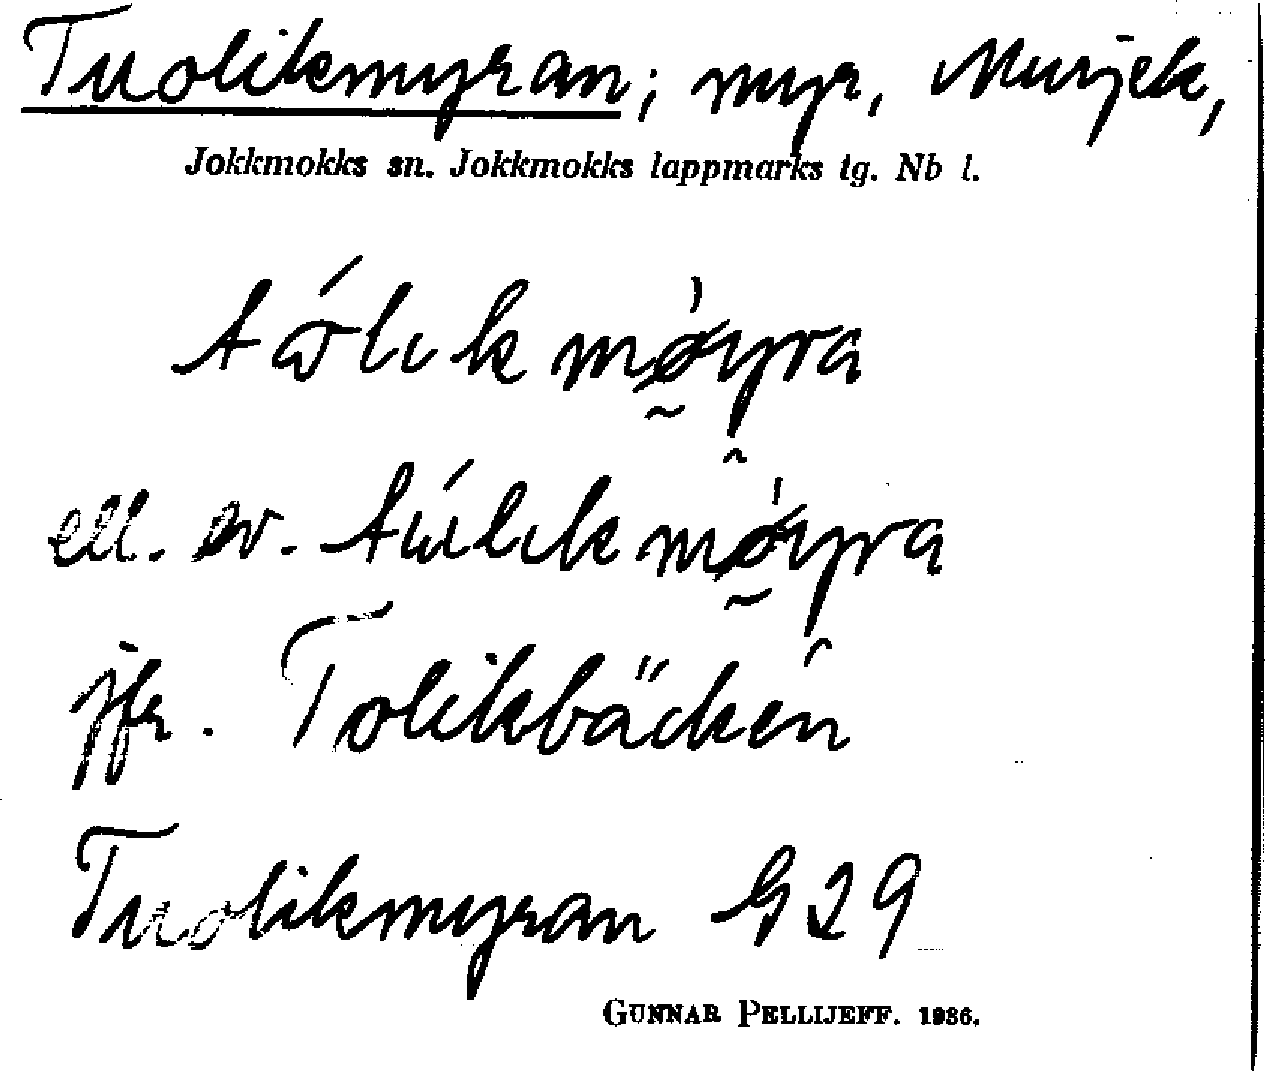 Tuolikmyran; myr, Murjek,
Jokkmokks sn. Jokkmokks lappmarks tg. Nb l.
ell. ev.
jfr. Tolikbäcken
Tuolikmyran G 29
GUNNAR PELLIJEFF. 1936.